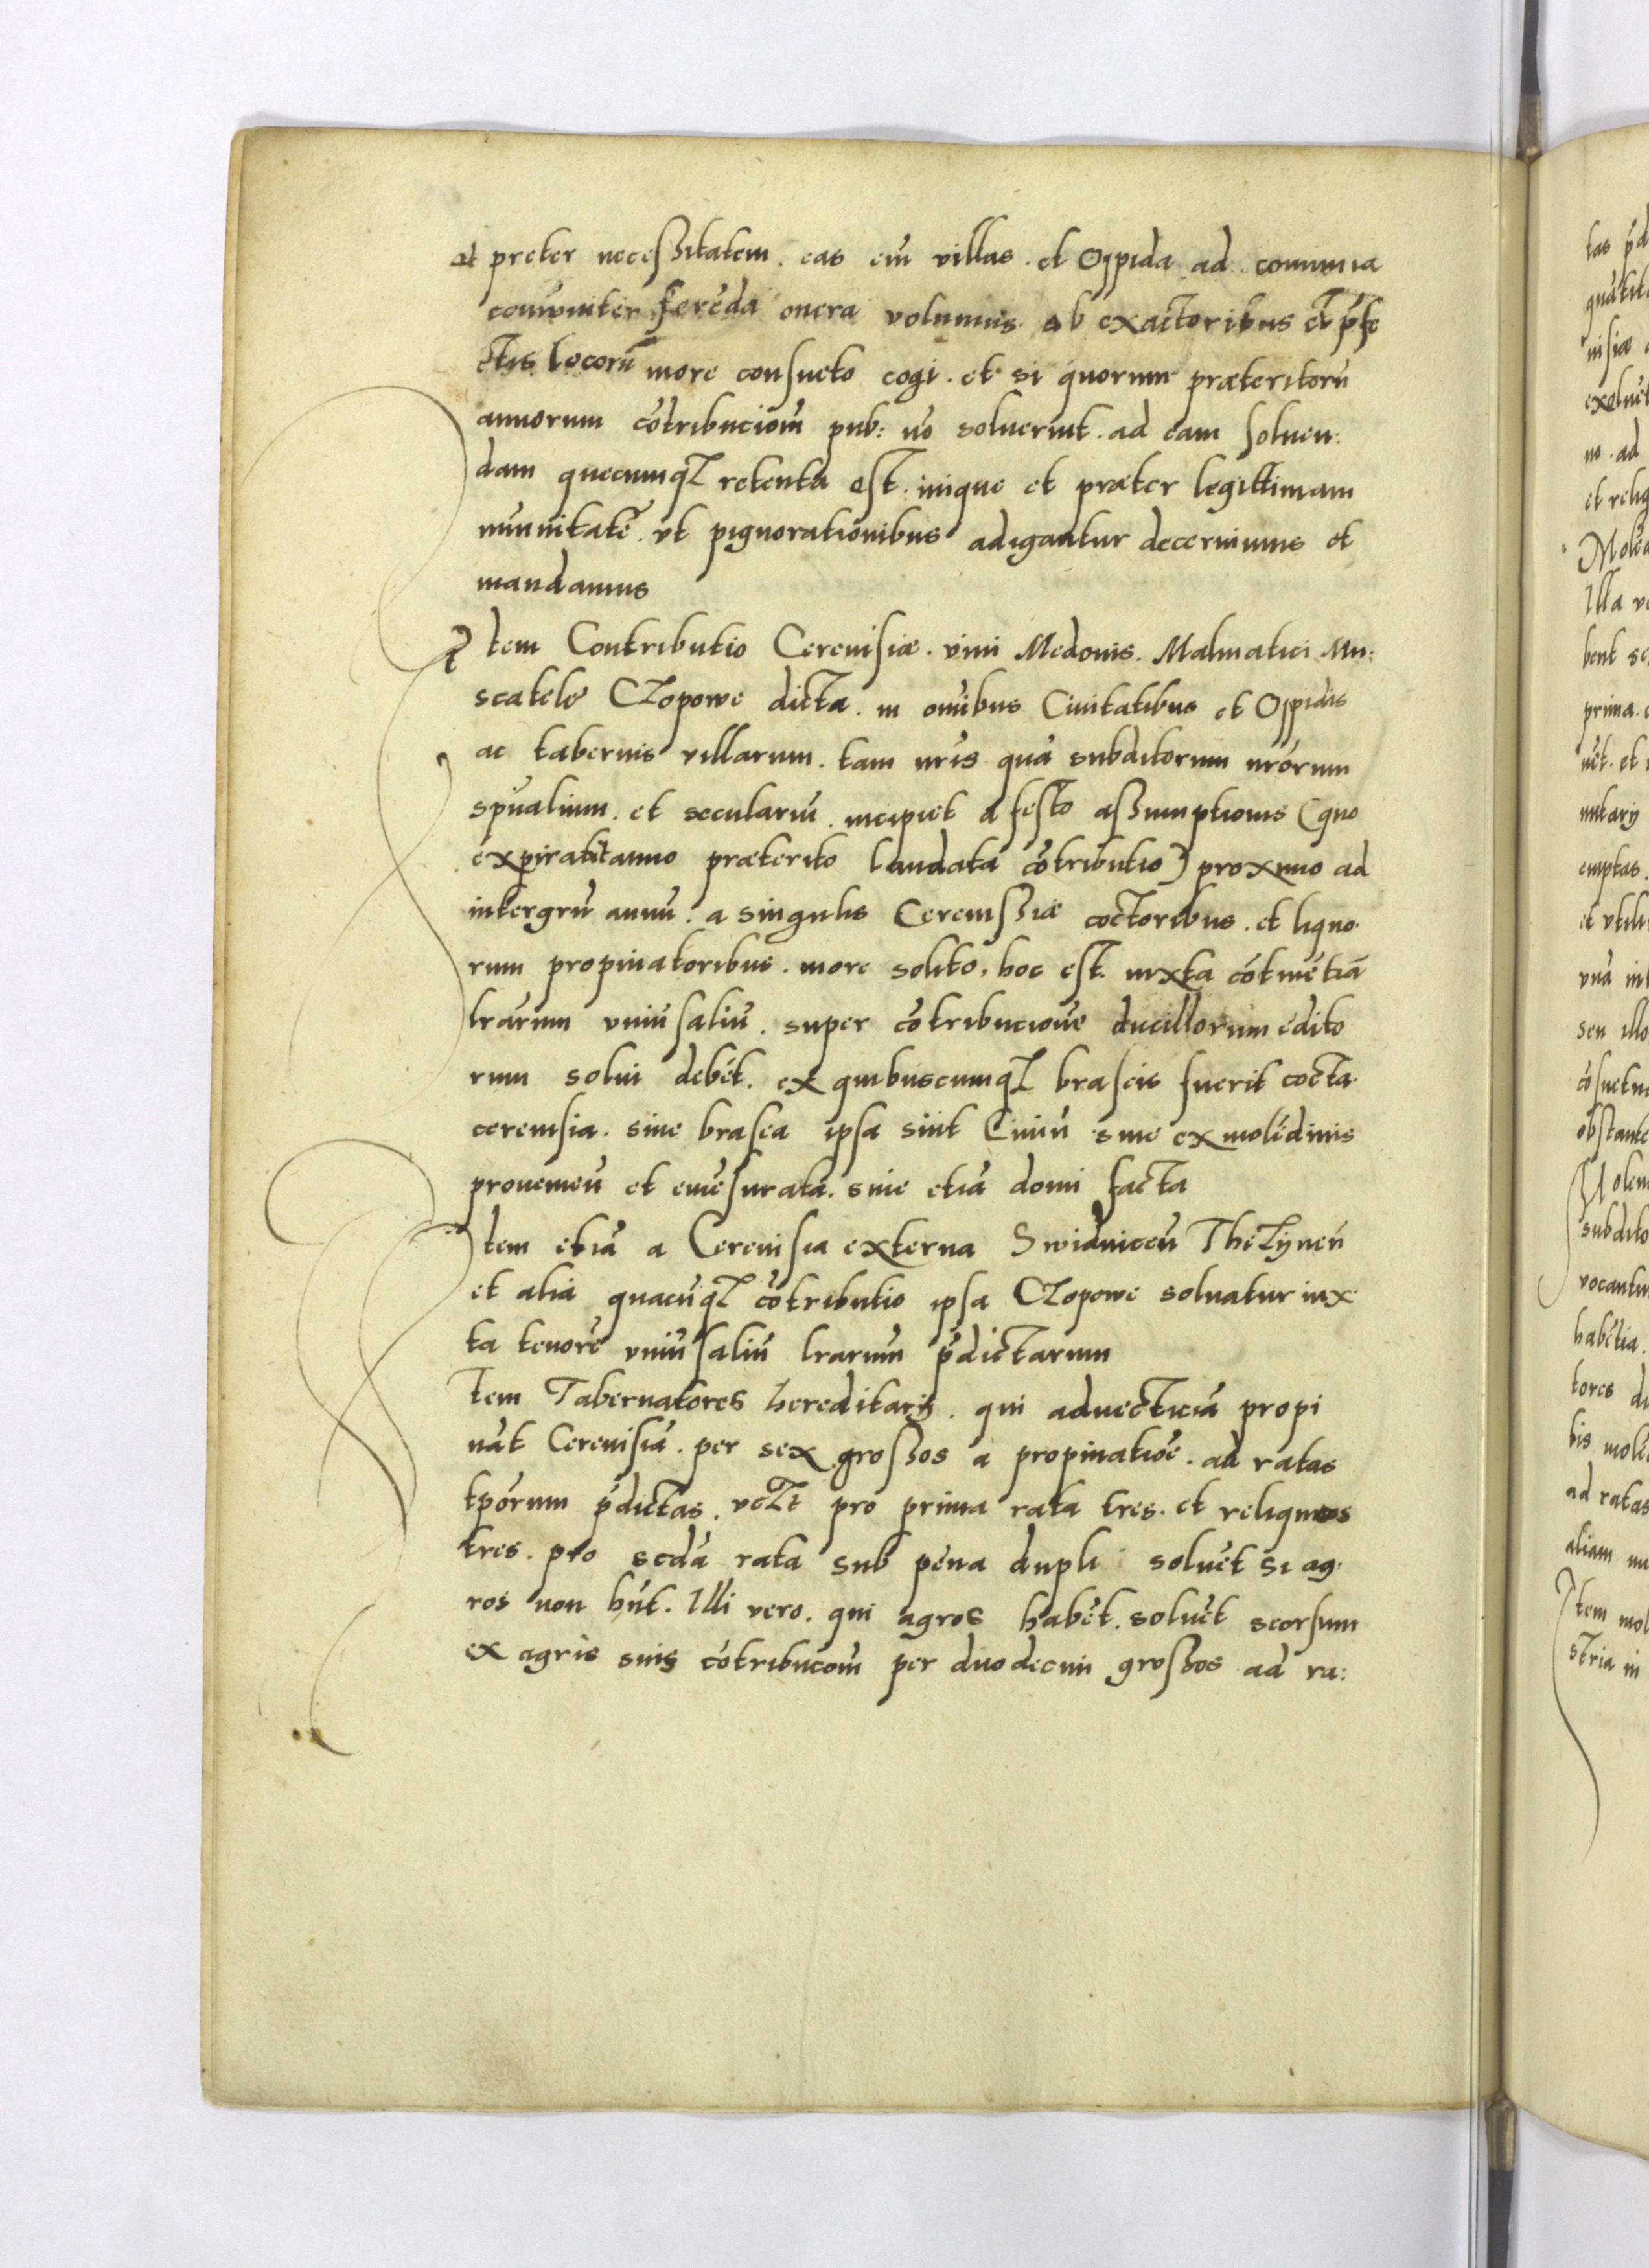 et preter necessitatem. eas em̄ villas. et Oppida ad comunia
comūniter ferēda onera volumus. ab exactoribus et p̄fe
ctis locorū more consueto cogi. et si quorum præteritorū
annorum cōtribucioēm pub: nō soluerint. ad eam soluen:
dam quecumqꝫ retenta est. inique et præter legittimam
imunitatē. vt pignorationibus adigantur decernimus et
mandamus
Item Contributio Cereuisiæ. vini Medonis. Malmatici Mu:
scatele Czopowe dicta. in omībus Ciuitatibus et Oppidis
ac tabernis villarum. tam nr̄is quā subditorum nr̄orum
sp̄ualium. et seculariū. incipiet a festo assumptionis (quo
expirabit anno præterito laudata cōtributio) proximo ad
intergrū annū. a singulis Cereuissiæ coctoribus. et liquo
rum propinatoribus. more solito. hoc est. iuxta cōtinētiā
lr̄arum vniūsaliū. super cōtribucione ducillorum edito
rum solui debēt. ex quibuscumqꝫ braseis fuerit cocta
cereuisia. siue brasea ipsa sint Ciuiū siue ex molēdinis
prouenieū et emēsurata. siue etiā domi facta
Item etiā a Cereuisia externa Swidniceū Thezÿneū
et alia quacūqꝫ cōtributio ipsa Czopowe soluatur iux
ta tenorē vniūsaliū lr̄arum p̄dictarum
Item Tabernatores hereditarij. qui aduecticiā propi
nāt Cereuisiā. per sex grossos a propinatiōe. ad ratas
tp̄orum p̄dictas. vcꝫt pro prima rata tres. et reliquos
tres. pro scdā rata sub pena dupli soluēt si ag
ros non hn̄t. Illi vero. qui agros habēt. soluēt seorsum
ex agris suis cōtribucōm̄ per duodecim grossos ad ra: